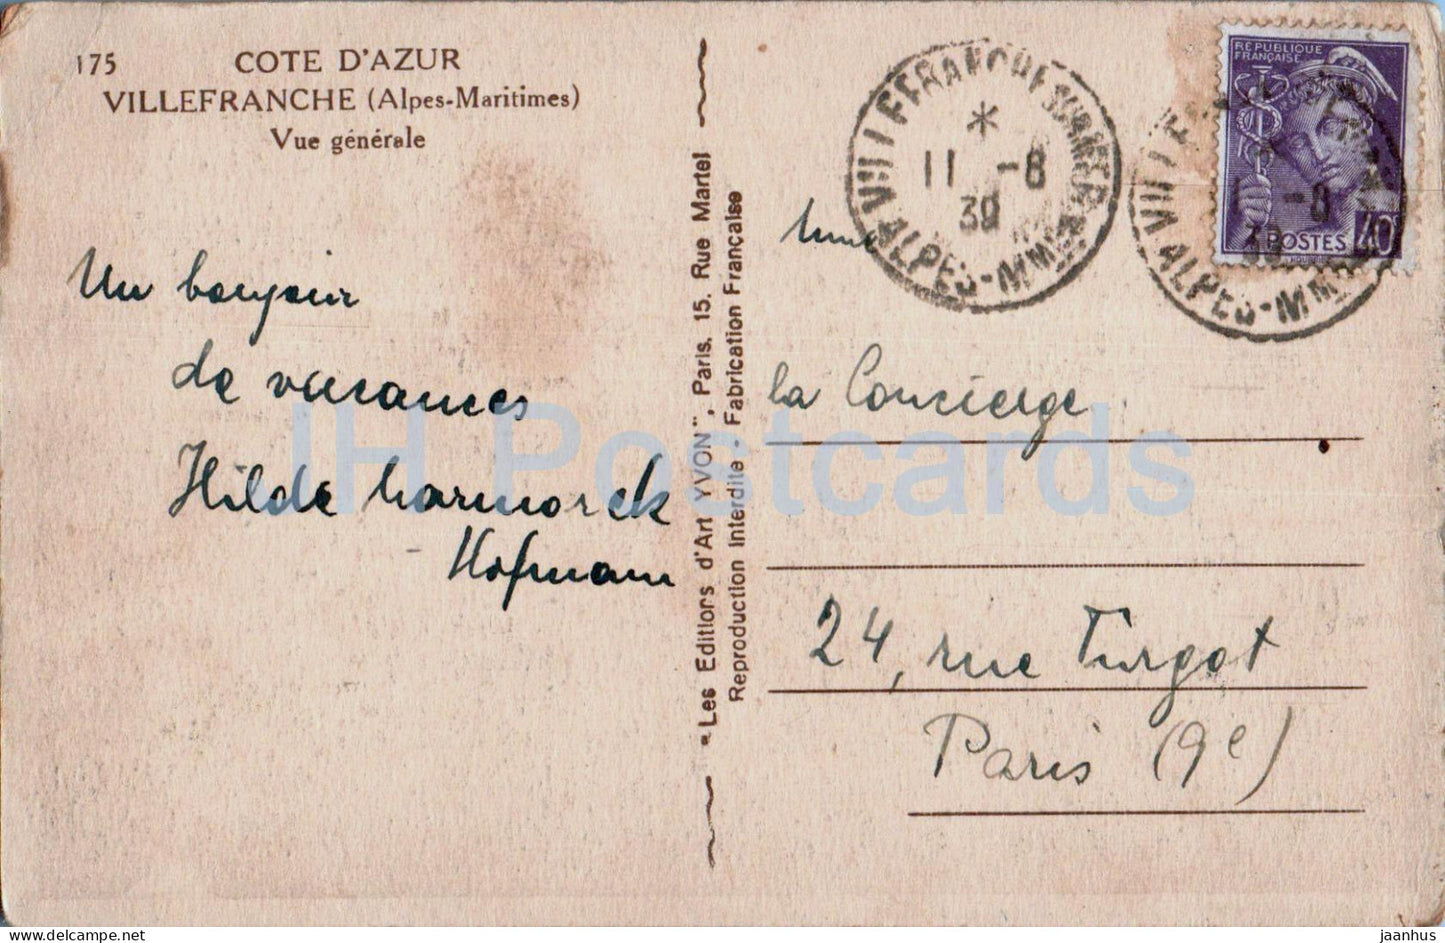 175 COTE D'AZUR
VILLEFRANCHE (Alpes-Maritimes)
Vue générale
Un bonjour
de vacances
Hilde Marmorek
Hofmann
"Les Editions d'Art YVON", Paris, 15, Rue Martel
Reproduction Interdite - Fabrication Française
VILLEFRANCHE SUR MER
11 -8
39
ALPES-MMES
RÉPUBLIQUE
FRANÇAISE
POSTES 40c
VILLEFRANCHE
-8
39
ALPES-MM
Mme
la Concierge
24, rue Turgot
Paris (9e)
IH Postcards
www.delcampe.net
jaanhus